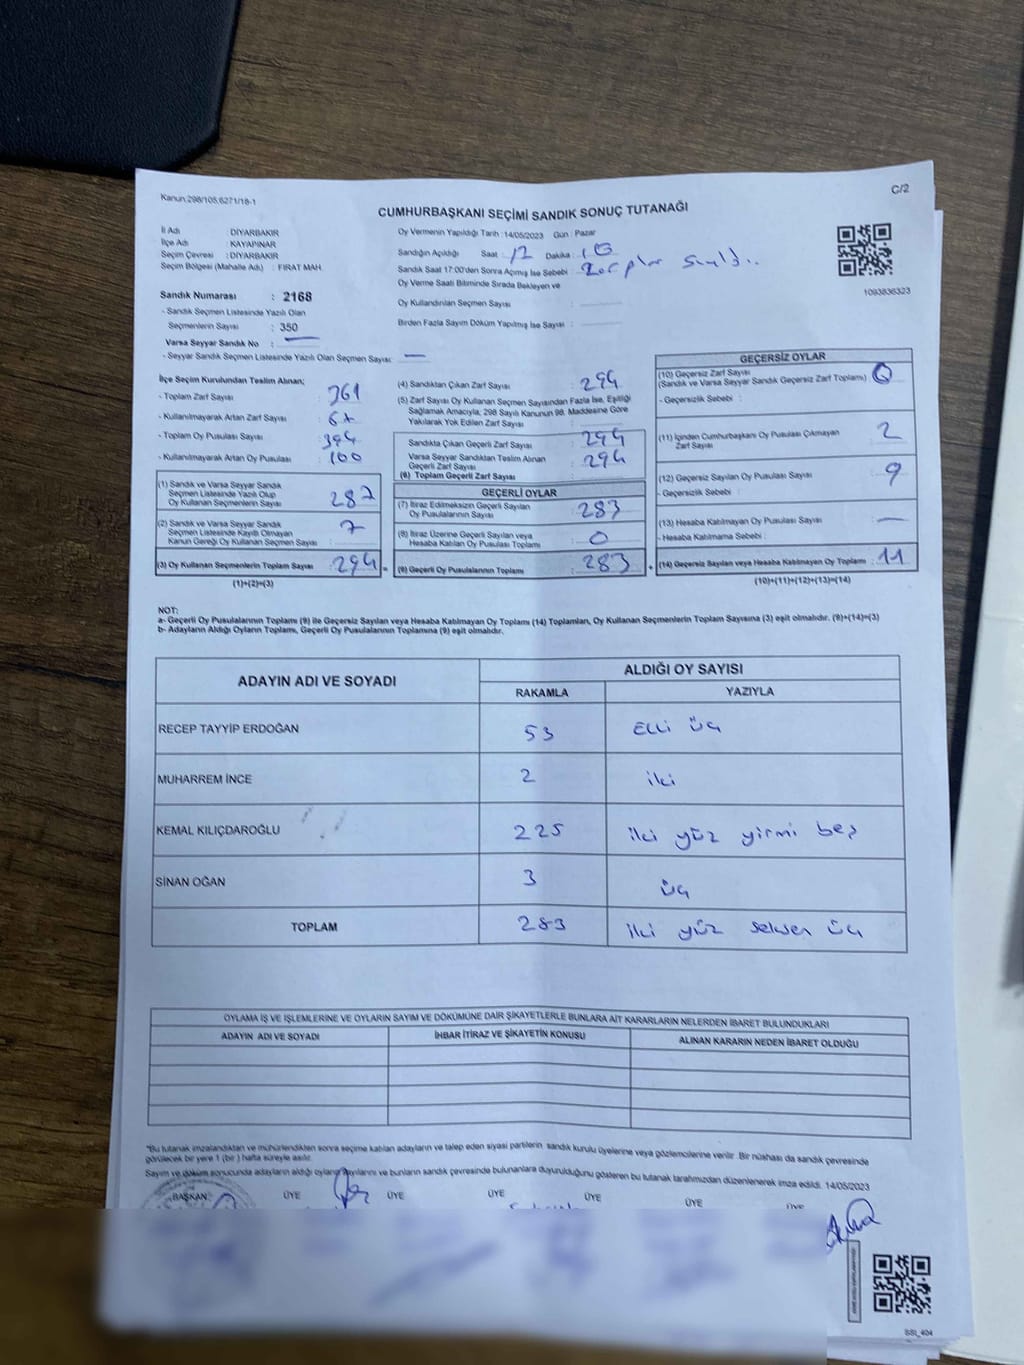 Kanun:298/105,6271/18-1
C/2
CUMHURBAŞKANI SEÇİMİ SANDIK SONUÇ TUTANAĞI
İl Adı : DİYARBAKIR
İlçe Adı : KAYAPINAR
Seçim Çevresi : DİYARBAKIR
Seçim Bölgesi (Mahalle Adı) : FIRAT MAH.
Sandık Numarası : 2168
- Sandık Seçmen Listesinde Yazılı Olan
Seçmenlerin Sayısı : 350
Varsa Seyyar Sandık No : —
- Seyyar Sandık Seçmen Listesinde Yazılı Olan Seçmen Sayısı : —
Oy Vermenin Yapıldığı Tarih : 14/05/2023 Gün : Pazar
Sandığın Açıldığı Saat : Dakika :
Sandık Saat 17:00'den Sonra Açımış İse Sebebi :
Oy Verme Saati Bitiminde Sırada Bekleyen ve
Oy Kullandırılan Seçmen Sayısı :
Birden Fazla Sayım Döküm Yapılmış İse Sayısı :
1093836323
İlçe Seçim Kurulundan Teslim Alınan;
- Toplam Zarf Sayısı : 361
- Kullanılmayarak Artan Zarf Sayısı :
- Toplam Oy Pusulası Sayısı : 394
- Kullanılmayarak Artan Oy Pusulası : 100
(1) Sandık ve Varsa Seyyar Sandık
Seçmen Listesinde Yazılı Olup
Oy Kullanan Seçmenlerin Sayısı : 287
(2) Sandık ve Varsa Seyyar Sandık
Seçmen Listesinde Kayıtlı Olmayan
Kanun Gereği Oy Kullanan Seçmen Sayısı : 7
(3) Oy Kullanan Seçmenlerin Toplam Sayısı : 294
(1)+(2)=(3)
(4) Sandıktan Çıkan Zarf Sayısı : 294
(5) Zarf Sayısı Oy Kullanan Seçmen Sayısından Fazla İse, Eşitliği
Sağlamak Amacıyla; 298 Sayılı Kanunun 98. Maddesine Göre
Yakılarak Yok Edilen Zarf Sayısı :
Sandıkta Çıkan Geçerli Zarf Sayısı : 294
Varsa Seyyar Sandıktan Teslim Alınan
Geçerli Zarf Sayısı : 294
(6) Toplam Geçerli Zarf Sayısı :
GEÇERLİ OYLAR
(7) İtiraz Edilmeksizin Geçerli Sayılan
Oy Pusulalarının Sayısı : 283
(8) İtiraz Üzerine Geçerli Sayılan veya
Hesaba Katılan Oy Pusulası Toplamı : 0
(9) Geçerli Oy Pusulalarının Toplamı : 283
GEÇERSİZ OYLAR
(10) Geçersiz Zarf Sayısı
(Sandık ve Varsa Seyyar Sandık Geçersiz Zarf Toplamı) : 0
- Geçersizlik Sebebi :
(11) İçinden Cumhurbaşkanı Oy Pusulası Çıkmayan
Zarf Sayısı : 2
(12) Geçersiz Sayılan Oy Pusulası Sayısı : 9
- Geçersizlik Sebebi :
(13) Hesaba Katılmayan Oy Pusulası Sayısı : —
- Hesaba Katılmama Sebebi :
(14) Geçersiz Sayılan veya Hesaba Katılmayan Oy Toplamı : 11
(10)+(11)+(12)+(13)=(14)
NOT:
a- Geçerli Oy Pusulalarının Toplamı (9) ile Geçersiz Sayılan veya Hesaba Katılmayan Oy Toplamı (14) Toplamları, Oy Kullanan Seçmenlerin Toplam Sayısına (3) eşit olmalıdır. (9)+(14)=(3)
b- Adayların Aldığı Oyların Toplamı, Geçerli Oy Pusulalarının Toplamına (9) eşit olmalıdır.
ADAYIN ADI VE SOYADI
ALDIĞI OY SAYISI
RAKAMLA YAZIYLA
RECEP TAYYİP ERDOĞAN 53 Elli üç
MUHARREM İNCE 2 iki
KEMAL KILIÇDAROĞLU 225 iki yüz yirmi beş
SİNAN OĞAN 3 üç
TOPLAM 283 iki yüz seksen üç
OYLAMA İŞ VE İŞLEMLERİNE VE OYLARIN SAYIM VE DÖKÜMÜNE DAİR ŞİKAYETLERLE BUNLARA AİT KARARLARIN NELERDEN İBARET BULUNDUKLARI
ADAYIN ADI VE SOYADI İHBAR İTİRAZ VE ŞİKAYETİN KONUSU ALINAN KARARIN NEDEN İBARET OLDUĞU
*Bu tutanak imzalandıktan ve mühürlendikten sonra seçime katılan adayların ve talep eden siyasi partilerin sandık kurulu üyelerine veya gözlemcilerine verilir. Bir nüshası da sandık çevresinde
görülecek bir yere 1 (bir) hafta süreyle asılır.
Sayım ve döküm sonucunda adayların aldığı oyların sayılarını ve bunların sandık çevresinde bulunanlara duyurulduğunu gösteren bu tutanak tarafımızdan düzenlenerek imza edildi. 14/05/2023
BAŞKAN ÜYE ÜYE ÜYE ÜYE ÜYE ÜYE
SSI_404